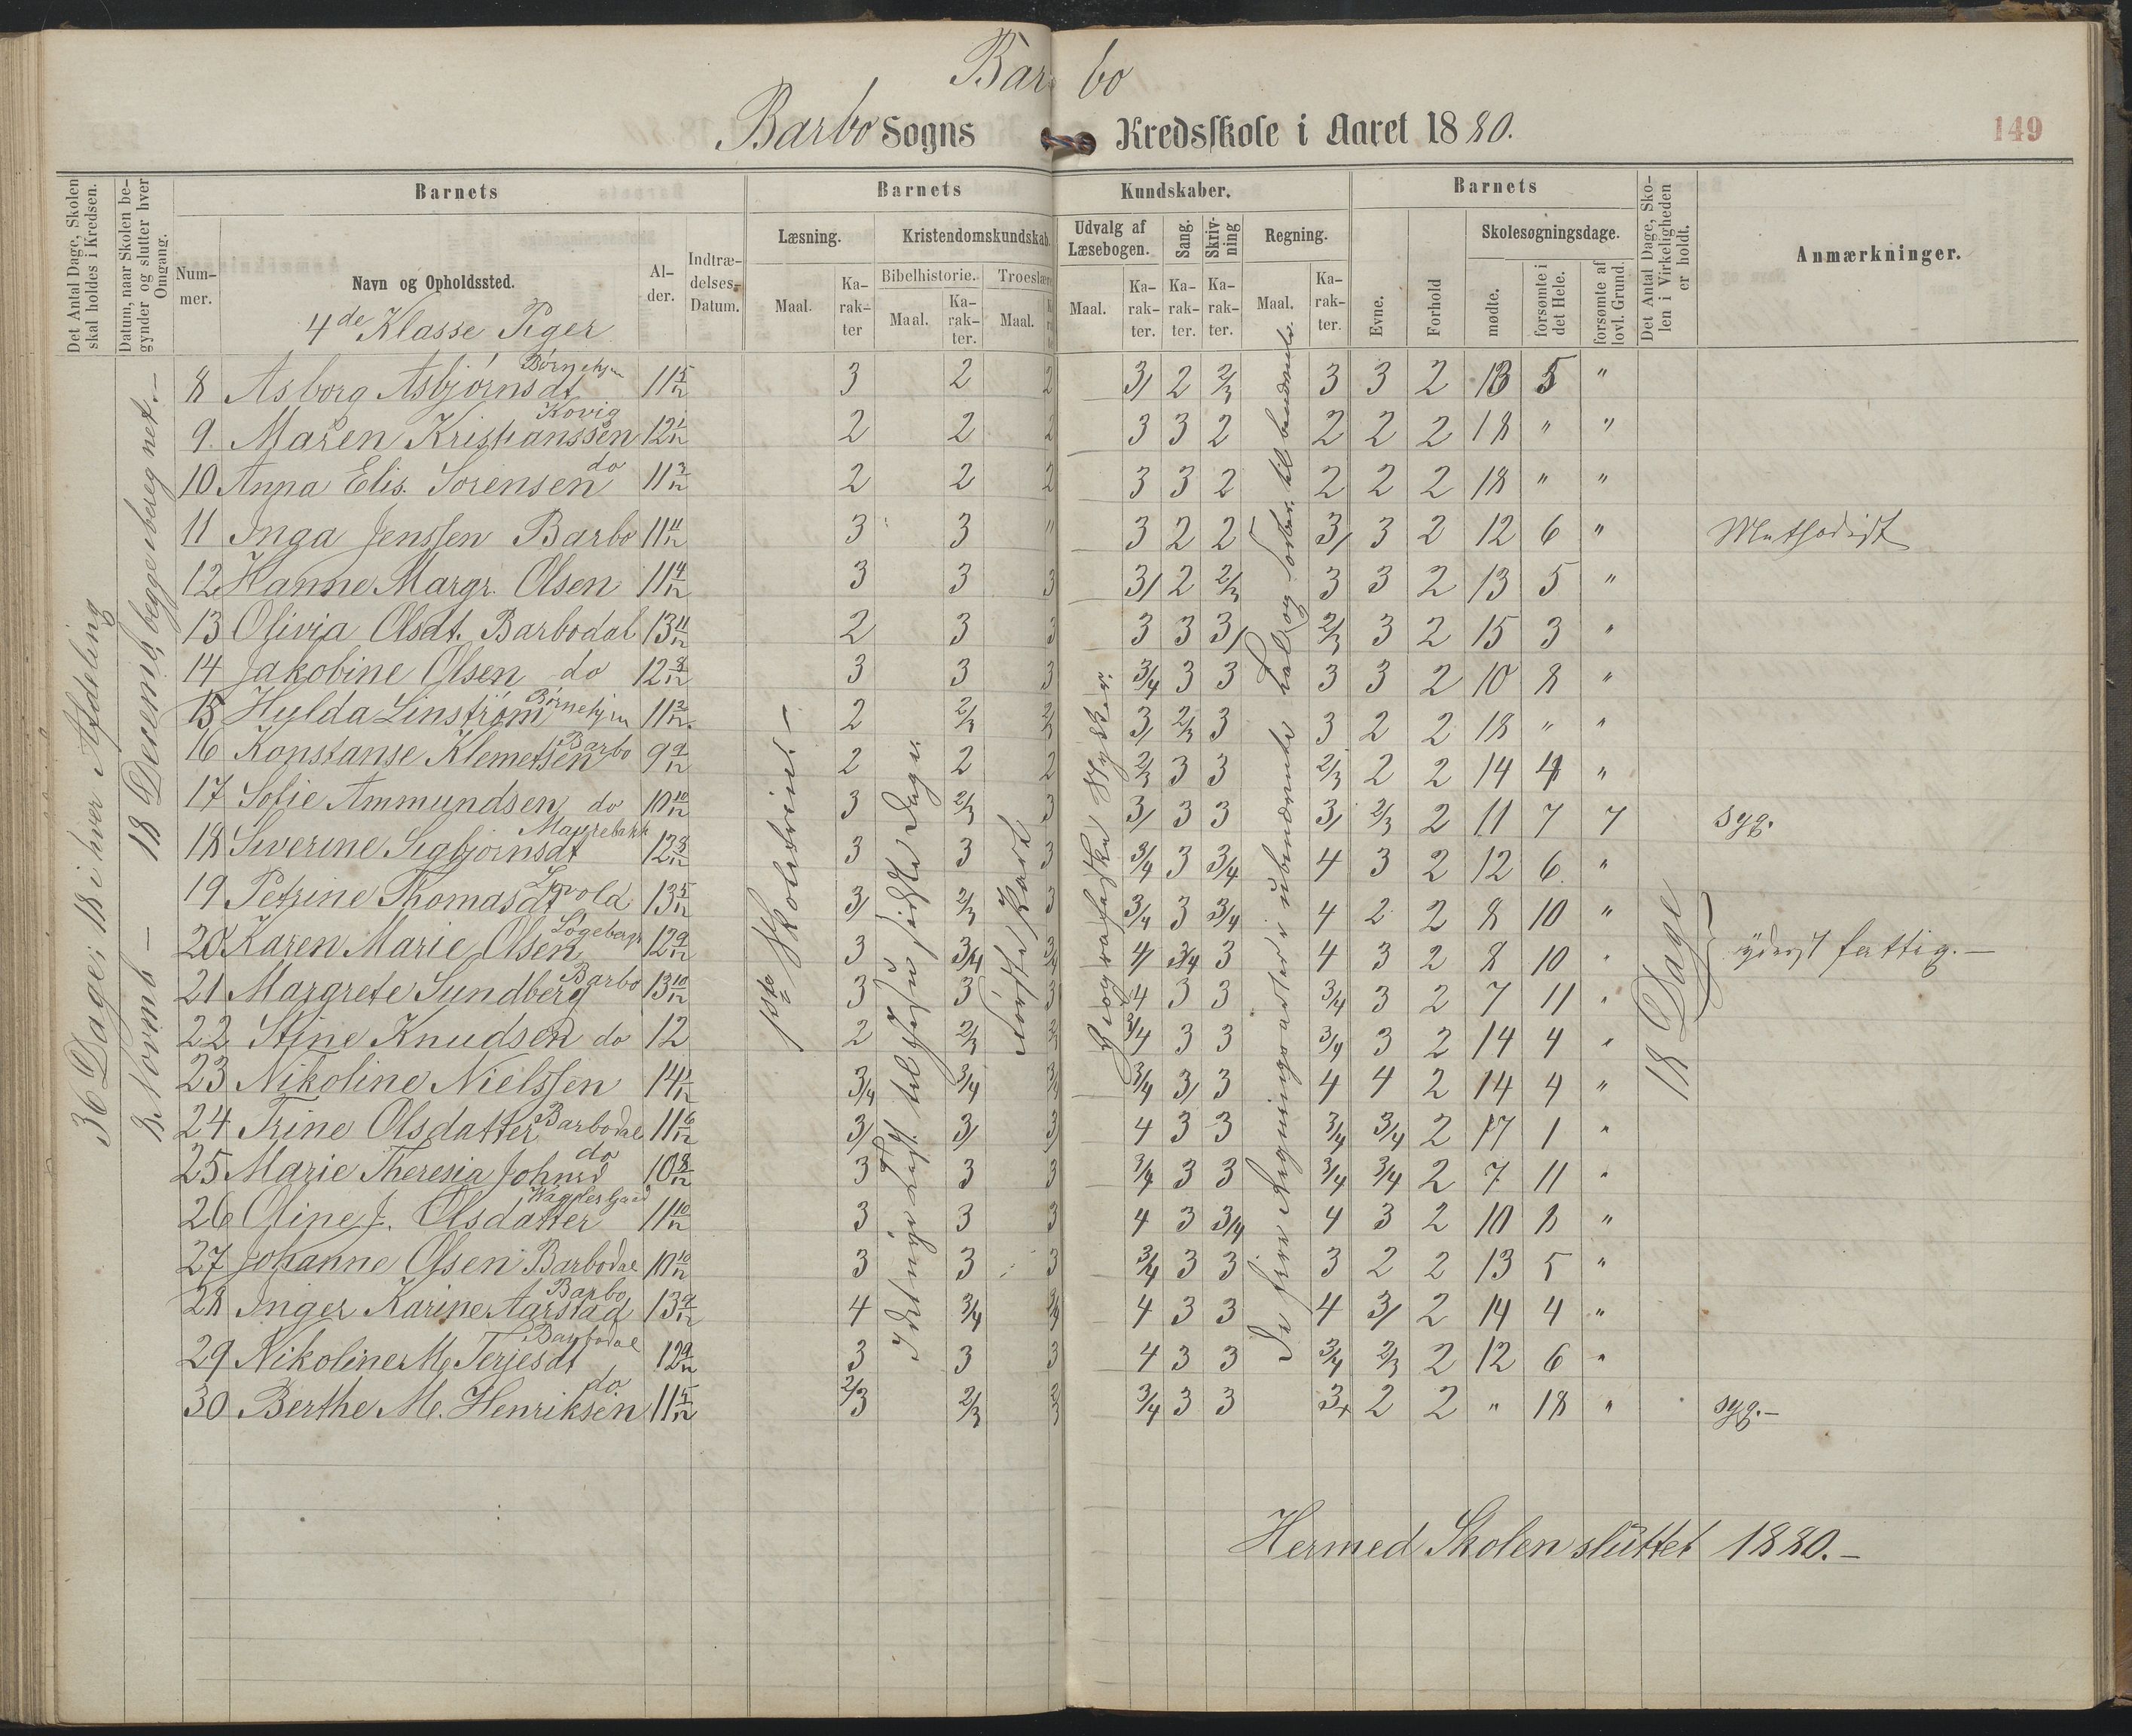 Barbo
Barbo Sogns Kredsskole i Aaret 1880.
149
Det Antal Dage, Skolen skal holdes i Kredsen.
Datum, naar Skolen begynder og slutter hver Omgang.
Barnets
Nummer.
Navn og Opholdssted.
4de Klasse Piger
Alder.
Indtrædelses-Datum.
Barnets Kundskaber.
Læsning.
Maal.
Karakter
Kristendomskundskab.
Bibelhistorie.
Maal.
Karakter.
Troeslære
Maal.
Udvalg af Læsebogen.
Maal.
Karakter.
Sang.
Karakter.
Skrivning
Karakter.
Regning.
Maal.
Karakter.
Barnets
Evne.
Forhold
Skolesøgningsdage.
mødte.
forsømte i det Hele.
forsømte af lovl. Grund.
Det Antal Dage, Skolen i Virkeligheden er holdt.
Anmærkninger.
36 Dage; 18 i hver Afdeling
8 Novmb — 18 Decemb, begge iberegnet.—
1ste Skoletrin.—
De fire Regningsarter i ubenævnte
18 Dage
8 Asborg Asbjörnsdt Börnehjem 11 5/12 3 2 2 3/ 2 2/3 3 3 2 13 5 "
9. Maren Kristianssen Kovig 12 1/12 2 2 2 3 3 2 2 2 2 18 " "
10 Anna Elis. Sorensen do 11 3/12 2 2 2 3 3 2 2 2 2 18 " "
11 Inga Jenssen Barbo 11 11/12 3 3 " 3 2 2 3/ 3 2 12 6 " Methodist
12 Hanne Margr. Olsen 11 4/12 3 3 3 3/ 2 2/3 3 3 2 13 5 "
13 Olivia Olsdt. Barbodal 13 11/12 2 3 3 3 3 3/ 2/3 3 2 15 3 "
14 Jakobine Olsen do 12 8/12 3 3 3 3/4 3 3 3 3 2 10 8 "
15 Hylda Linström Börnehjem 11 2/12 2 2/3 2/3 3/ 2/3 3 3 2 2 18 " "
16 Konstanse Klemetsen Barbo 9 9/12 2 2 2 2/3 3 3 2/3 2 2 14 4 "
17 Sofie Ammundsen do 10 10/12 3 2/3 3 3/ 3 3 3/ 2/3 2 11 7 7 syg.
18 Severine Sigbjörnsdt 12 8/12 3 3 3 3/4 3 3/4 4 3 2 12 6. "
19 Petrine Thomasdt 13 5/12 3/ 2/3 3 3/4 3 3/4 4 2 2 8 10 "
20 Karen Marie Olsen 12 9/12 3 3/4 3/4 4/ 3/4 3 4 3 2 8 10 " yderst fattig.—
21 Margrete Sundberg Barbo 13 10/12 3 3 3 4 3 3 3/4 3 2 7 11 "
22 Stine Knudsen do 12 2 2/3 2/3 3/4 3 3 3/4 3 2 14 4 "
23 Nikoline Nielssen 14 1/12 3/4 3/4 3/4 3/4 3/ 3 4 4 2 14 4 "
24 Trine Olsdatter Barbodal 11 6/12 3/ 3/ 3/ 4 3 3 3/4 3/4 2 17 1 "
25 Marie Theresia Johnsd do 10 8/12 3 3 3 3/4 3 3 3/4 3/4 2 7 11 "
26 Oline J. Olsdatter 11 10/12 3 3 3 4 3 3/4 4 3 2 10 8 "
27 Johanne Olsen Barbodal 10 10/12 3 3 3 3/4 3 3 3 2 2 13 5 "
28 Inger Karine Aarstad Barbo 13 9/12 4 3/4 3/4 4 3 3 4 3/ 2 14 4 "
29 Nikoline M. Terjesdt Barbodal 12 9/12 3 3 3 4 3 3 3/4 2/3 2 12 6 "
30 Berthe M. Henriksen do 11 5/12 2/3 2/3 2/3 3/4 3 3 3+ 2 2 " 18 " syg.—
Hermed Skolen sluttet 1880.—